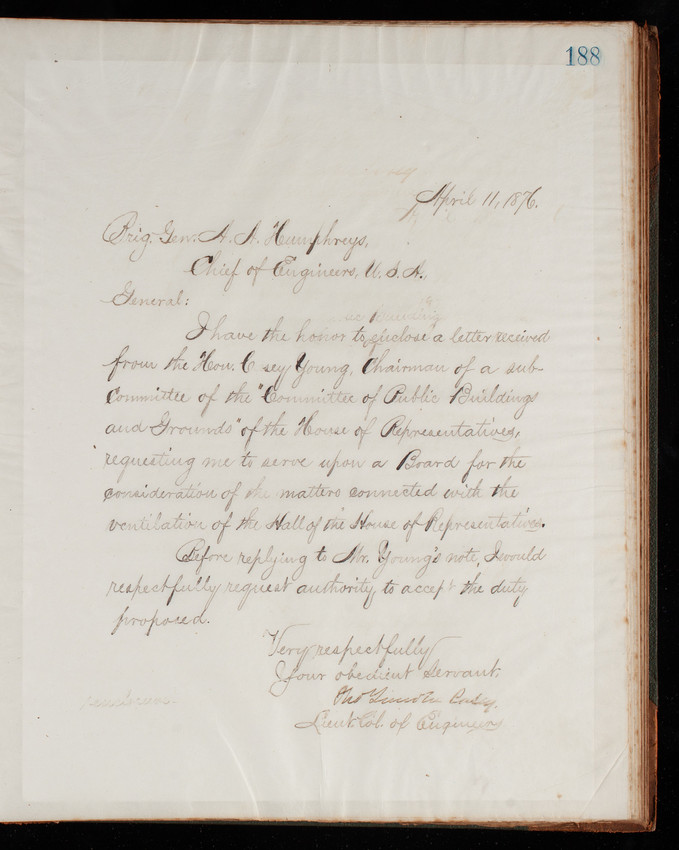 188
April 11, 1876.
Brig. Gen. A. A. Humphreys,
Chief of Engineers, U.S.A.
General:
I have the honor to enclose a letter received
from the Hon. Casey Young, Chairman of a sub-
committee of the "Committee of Public Buildings
and Grounds" of the House of Representatives,
requesting me to serve upon a Board for the
consideration of the matters connected with the
ventilation of the Hall of the House of Representatives.
Before replying to Mr. Young's note, I would
respectfully request authority to accept the duty
proposed.
Very respectfully
Your obedient servant.
Thos Lincoln Casey,
Lieut. Col. of Engineers